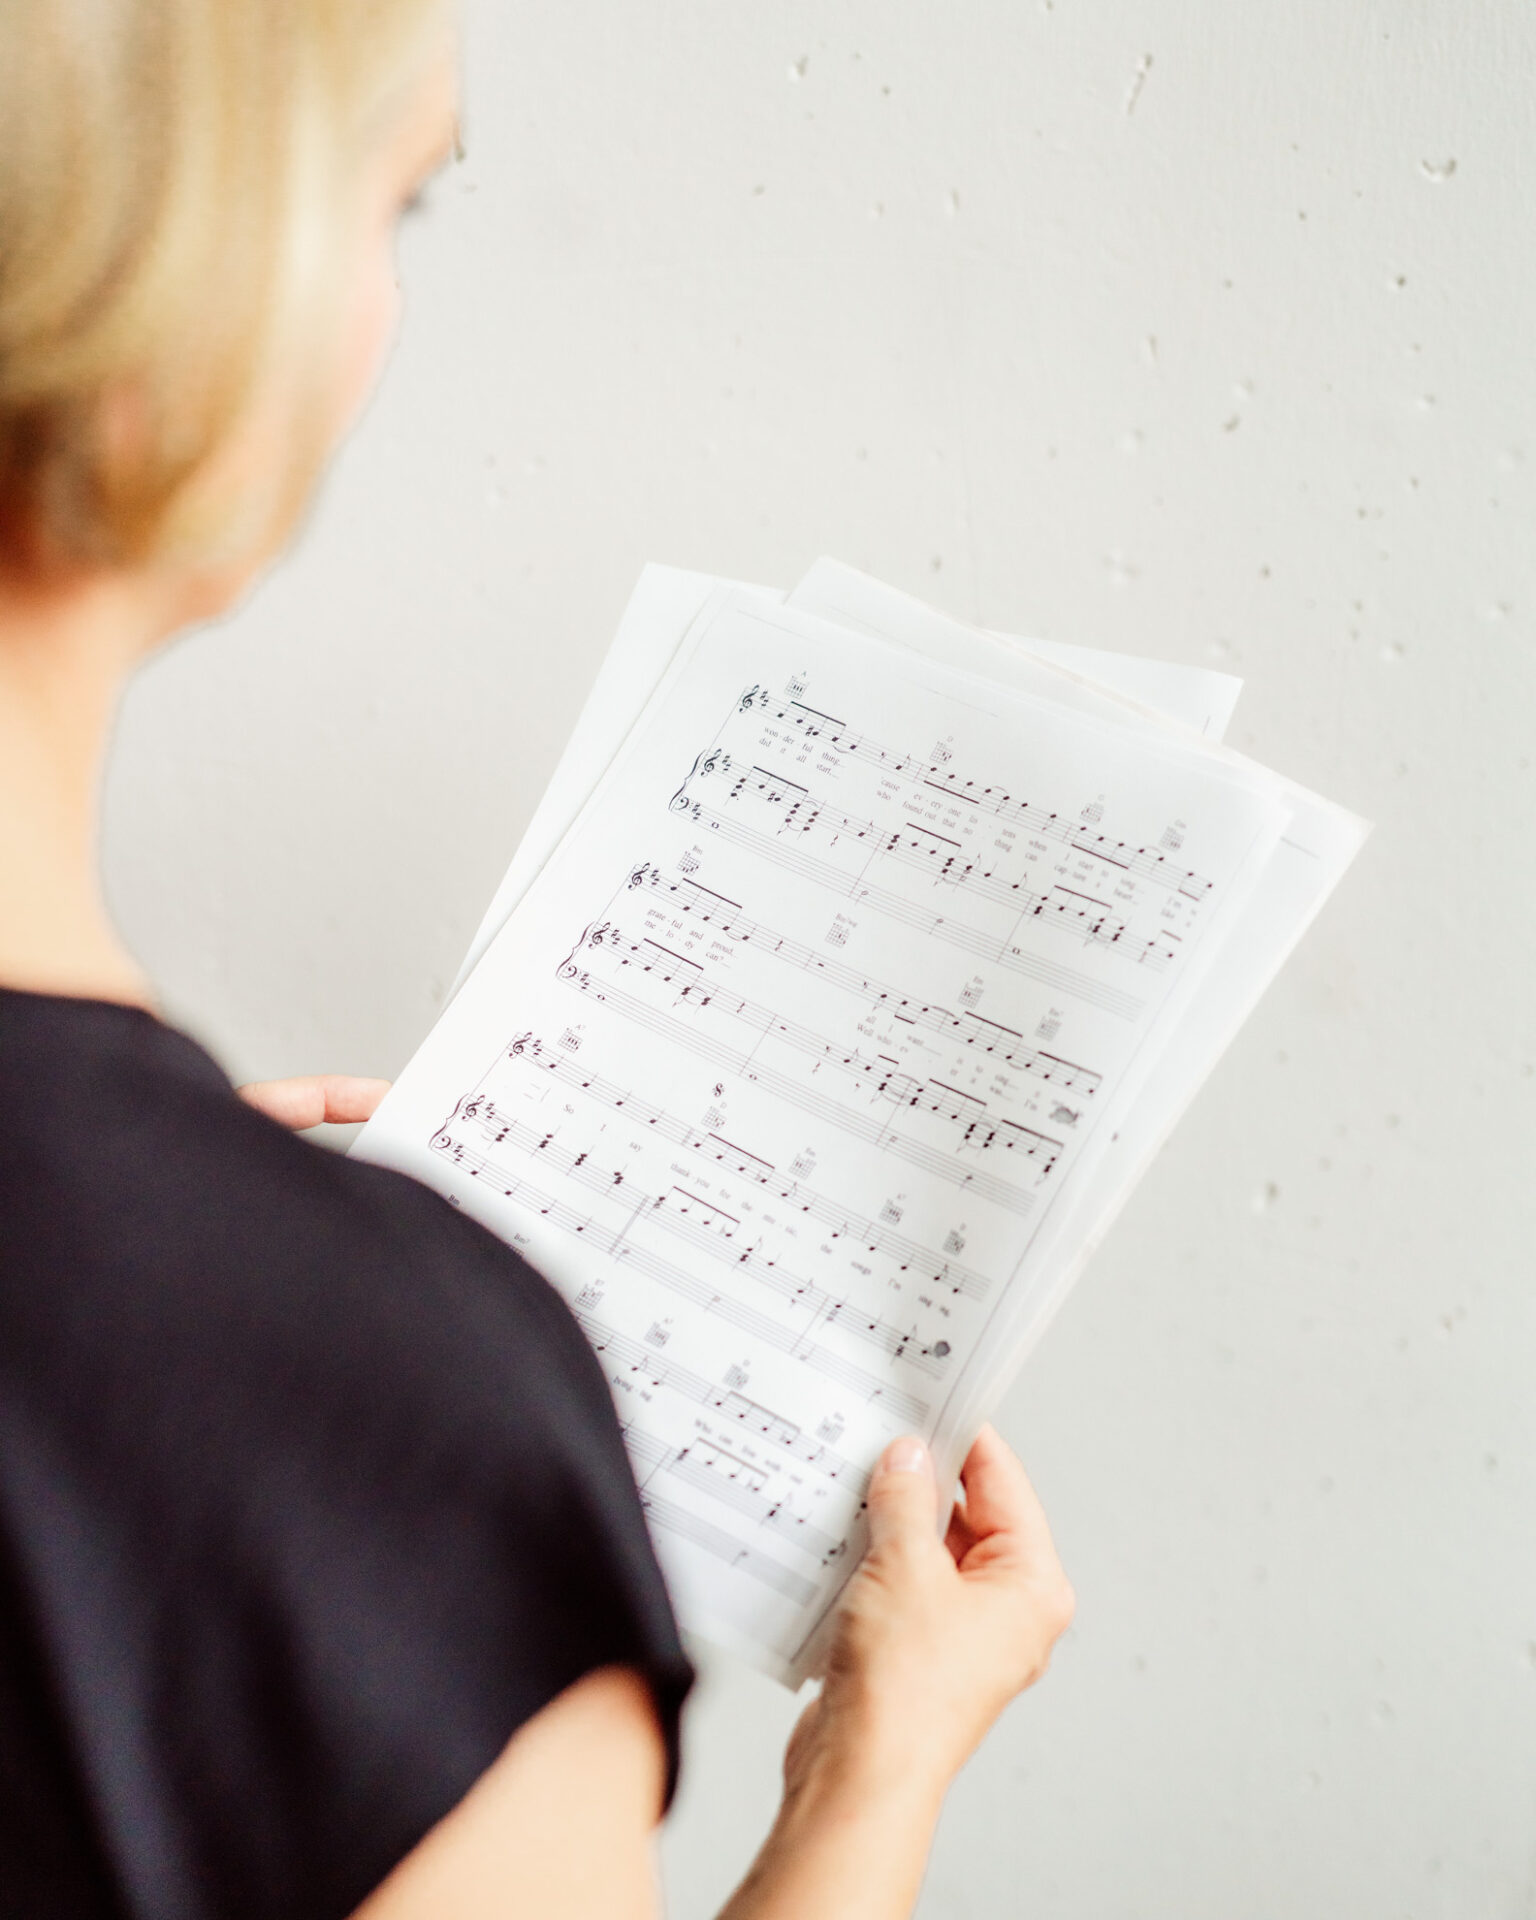 A D G Gm
won - der - ful thing, 'cause ev - ery - one lis - tens when I start to sing. I'm
did it all start, who found out that no - thing can cap - ture a heart like a
Bm Em
grate - ful and proud. all I want is to sing
me - lo - dy can? Well, who - ev - er it was, I'm
A7 D Em A7 D
So I say thank you for the mu - sic, the songs I'm sing - ing.
Bm Bm7 E7 A7 D Em
bring - ing. Who can live with - out